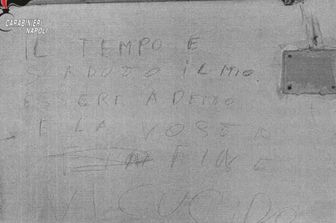 CARABINIERI
NAPOLI
IL TEMPO E
SCADUTO IL MIO.
ESSERE ADESSO
E LA VOSTRA
FINE